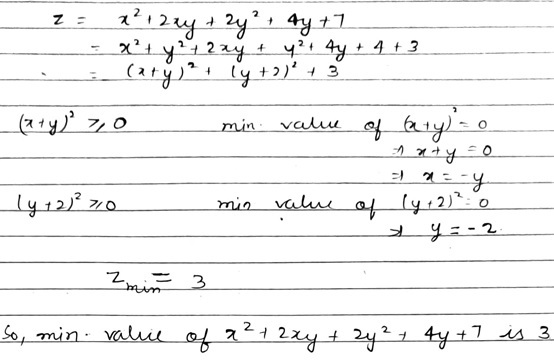 z = x² + 2xy + 2y² + 4y + 7
= x² + y² + 2xy + y² + 4y + 4 + 3
= (x+y)² + (y+2)² + 3
(x+y)² ≥ 0 min. value of (x+y)² = 0
⇒ x + y = 0
⇒ x = -y
(y+2)² ≥ 0 min value of (y+2)² = 0
⇒ y = -2
Zmin = 3
So, min. value of x² + 2xy + 2y² + 4y + 7 is 3